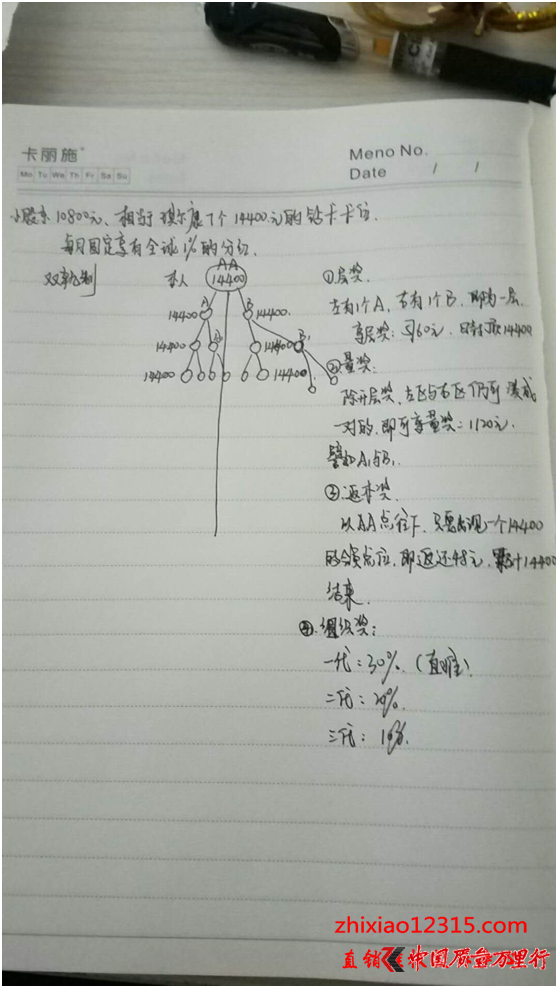 卡丽施
Meno No.
Mo Tu We Th Fr Sa Su
Date / /
小股东10800元、相当于 康1个14400元的钻卡卡位.
每月固定享有全球1%的分红.
双轨制
本人
AA
14400
A
B
14400
14400
14400
B1
14400
14400
①层奖.
左有1个A, 右有1个B, 即为一层.
享层奖: 日封顶14400
②量奖:
除开层奖, 左区与右区仍可凑成
一对的, 即可享量奖: 1120元.
譬如A1与B1.
③返本奖.
以AA点往下, 只要出现一个14400
的会员点位, 即返还48元. 累计14400
结束.
④.组织奖:
一代: 30%. (直推)
二代: 20%.
三代: 10%.
zhixiao12315.com
直销
中国质量万里行